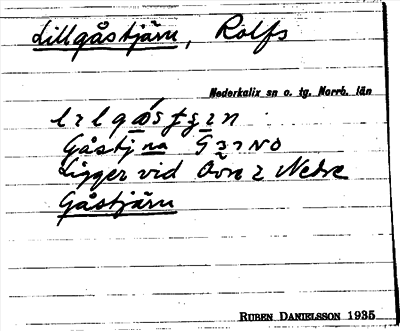 Lillgåstjärn, Rolfs
Nederkalix sn o. tg. Norrb. län
Gåstjna
Ligger vid Övre o Nedre
Gåstjärn
RUBEN DANIELSSON 1935